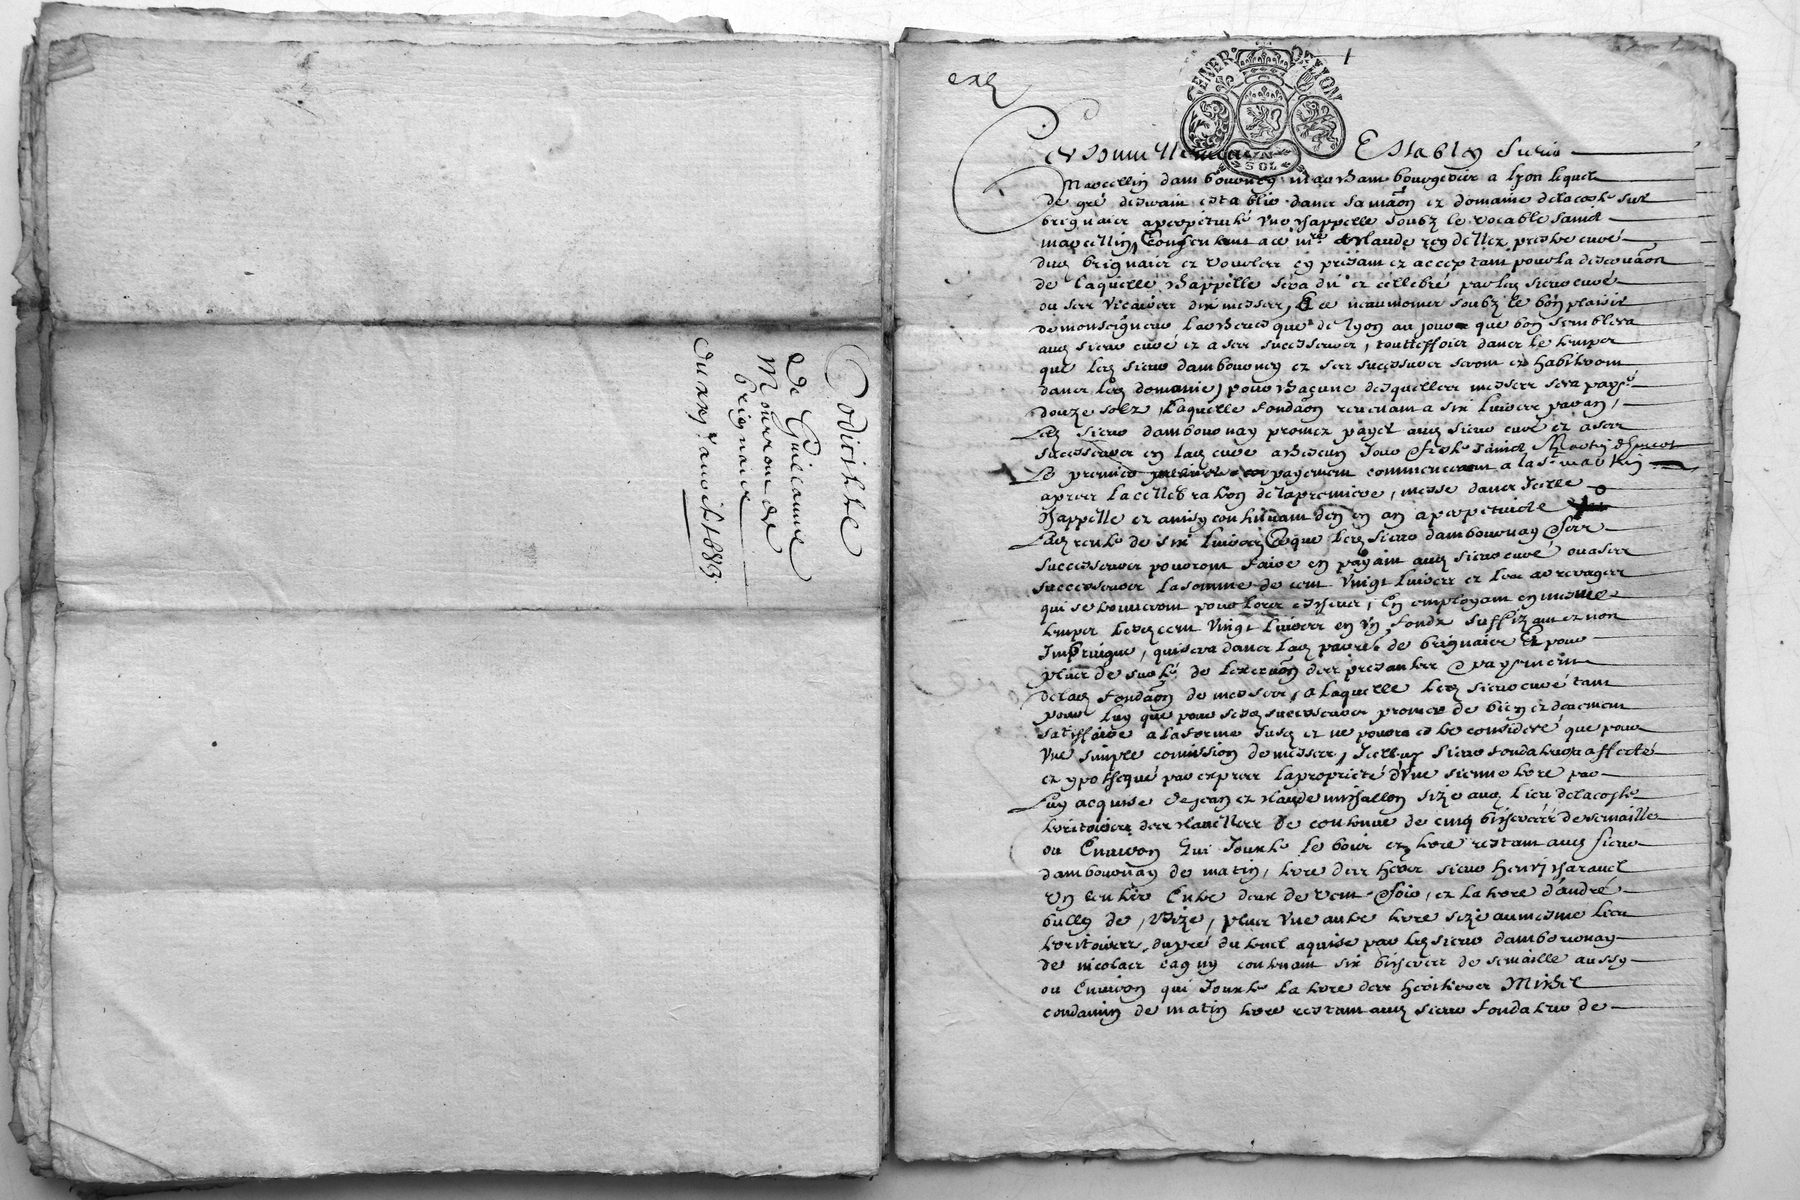 Codicille
de Guillaume
Mourron de
brignaiz
du xxv.e aout 1683
GENER. DE LYON
VN
SOL
1
Personnellement Estably sieur
Marcellin dambournay marchant bourgeois a lyon lequel
de gré desirant establir dans sa maison et domaine delacoste sur
brignaiz a perpetuité vne chappelle soubz le vocable saint
marcellin, consentant a ce mre claude reydellet prestre curé
dud brignaiz et vourles cy present et acceptant pour la
de laquelle chappelle sera dit et cellebré par led sieur curé
ou ses vicaires dix messes, et ce neanmoins soubz le bon plaisir
de monseigneur larchevesque de lyon au jour que bon semblera
aud sieur curé et a ses successeurs, touttesfois dans le temps
que led sieur dambournay et ses successeurs seront et habiteront
dans led domaine, pour chacune desquelles messes sera payé
douze solz, laquelle fondaon revenant a six livres par an,
led sieur dambournay promet payer aud sieur curé et a ses
successeurs en lad cure a chacun jour feste saint Martin d'hiver
le premier payement commencera a la st martin
apres la cellebration de la premiere messe dans icelle
chappelle et ainsy continuant d'en en an a perpetuité
lad rente de six livres que led sieur dambournay & ses
successeurs pourront faire en payant aud sieur curé ou a ses
successeurs la somme de cent vingt livres et les arrerages
qui se trouveront pour lors escheus, en employant en mesme
temps lesd cent vingt livres en vn fondz suffizant et non
, qui sera dans lad parre de brignaiz Et pour
plus de sureté de lexecuon des presantes & payement
de lad fondaon de messes, a laquelle led sieur curé tant
pour luy que pour sesd successeurs promet de bien et deuement
satisffaire a la forme susd et ne pourra estre consideré que pour
vne simple comission de messes, icelluy sieur fondateur a affecté
et ypothequé par expres la proprieté d'vne sienne terre par
luy acquise de jean et claude michallon size aud lieu delacoste
territoire des de contenue de cinq bicherées de semaille
ou environ qui jouxte le bois et terre restant aud sieur
dambournay de matin, terre des hoirs sieur henry
vn sentier entre deux de vent & soir, et la terre d'andré
bully de bize, plus vne autre terre size au mesme lieu
territoire du pré du aquise par led sieur dambournay
de nicolas cagny contenant six bicherées de semaille aussy
ou environ qui jouxte la terre des heritiers Michel
condamin de matin terre restant aud sieur fondateur de